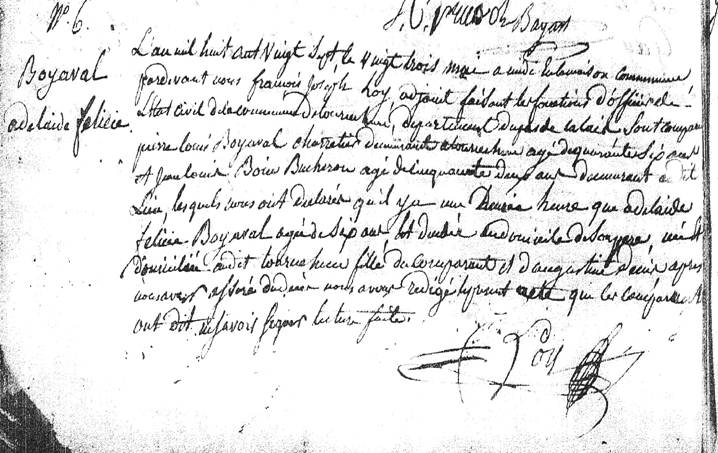 N.° 6.
Boyaval
adelaide felicie
L'an mil huit cent vingt sept le vingt trois mai a midi en la maison commune
pardevant nous françois joseph Loy adjoint faisant les fonctions d'officier de
l'état civil de la commune de tournehem, departement du pas de calais sont compar
pierre louis Boyaval charretier demeurant a tournehem agé de quarante six ans
et jean louis Bucheron agé de cinquante deux ans demeurant au dit
Lieu, lesquels nous ont declarés qu'il y a une heure que adelaide
felicie Boyaval agée de six ans est decedée au domicile de son pere, née et
domiciliée au dit tournehem fille du comparant et d'augustine apres
nous avoir assuré du decès nous avons redigé le present acte que les comparants
ont dit ne savoir signer lecture faite.
Loy